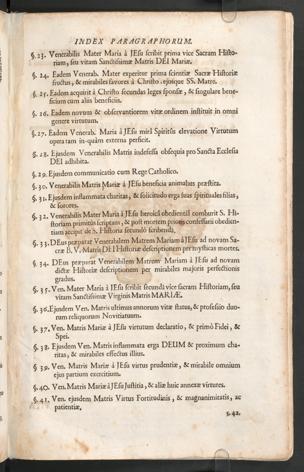 INDEX PARAGRAPHORUM.
§. 23. Venerabilis Mater Maria à JEsu scribit prima vice Sacram Histo-
riam, seu vitam Sanctissimæ Matris DEI Mariæ.
§. 24. Eadem Venerab. Mater experitur prima scientiæ Sacræ Historiæ
fructus, & mirabiles favores à Christo, ejusque SS. Matre.
§. 25. Eadem acquirit à Christo secundas leges sponsæ, & singulare bene-
ficium cum aliis beneficiis.
§. 26. Eadem novum & observantiorem vitæ ordinem instituit in omni
genere virtutum.
§. 27. Eadem Venerab. Maria à JEsu mirâ Spiritûs elevatione Virtutum
opera tam in-quàm externa perficit.
§. 28. Ejusdem Venerabilis Matris indefessa obsequia pro Sancta Ecclesia
DEI adhibita.
§. 29. Ejusdem communicatio cum Rege Catholico.
§. 30. Venerabilis Matris Mariæ à JEsu beneficia animabus præstita.
§. 31. Ejusdem inflammata charitas, & solicitudo erga suas spirituales filias,
& sorores.
§. 32. Venerabilis Mater Maria à JEsu heroicâ obedientiâ comburit S. Hi-
storiam primitùs scriptam, & post mortem confessarii obedien-
tiam accipit de S. Historia secundò scribenda.
§. 33. DEus præparat Venerabilem Matrem Mariam à JEsu ad novam Sa-
cræ B. V. Matris DEI Historiæ descriptionem per mysticas mortes.
§. 34. DEus præparat Venerabilem Matrem Mariam à JEsu ad novam
dictæ Historiæ descriptionem per mirabiles majoris perfectionis
gradus.
§. 35. Ven. Mater Maria à JEsu scribit secundâ vice sacram Historiam, seu
vitam Sanctissimæ Virginis Matris MARIÆ.
§. 36. Ejusdem Ven. Matris ultimus annorum vitæ status, & professio duo-
rum reliquorum Novitiatuum.
§. 37. Ven. Matris Mariæ à JEsu virtutum declaratio, & primò Fidei, &
Spei.
§. 38. Ejusdem Ven. Matris inflammata erga DEUM & proximum cha-
ritas, & mirabiles effectus illius.
§. 39. Ven. Matris Mariæ à JEsu virtus prudentiæ, & mirabile omnium
ejus partium exercitium.
§. 40. Ven. Matris Mariæ à JEsu Justitia, & aliæ huic annexæ virtutes.
§. 41. Ven. ejusdem Matris Virtus Fortitudinis, & magnanimitatis, ac
patientiæ,
§. 42.